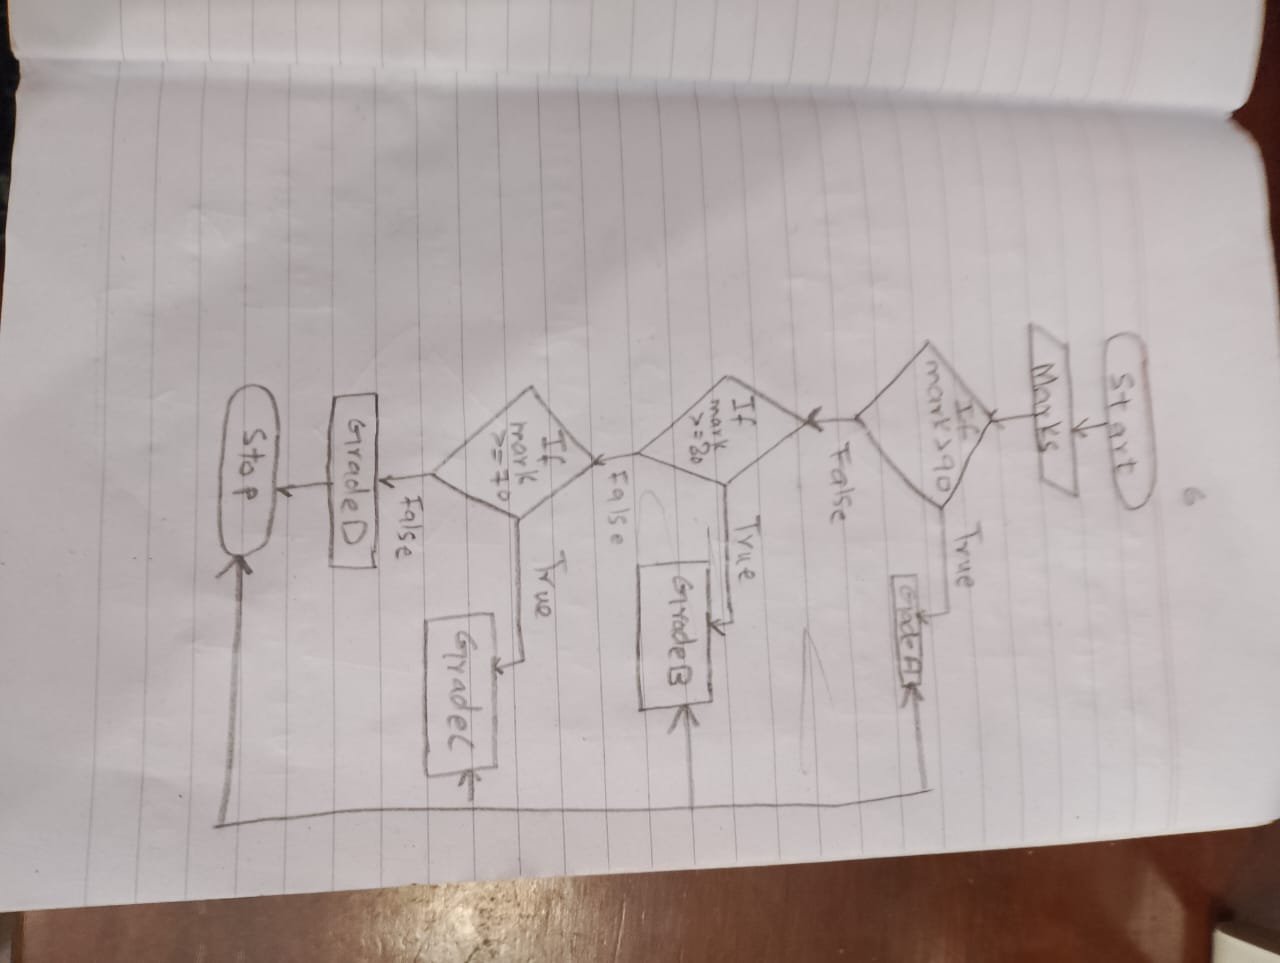 6
Start
Marks
If
mark>90
True
Grade A
False
If
mark
>=80
True
Grade B
False
If
mark
>=70
True
Grade C
False
Grade D
Stop